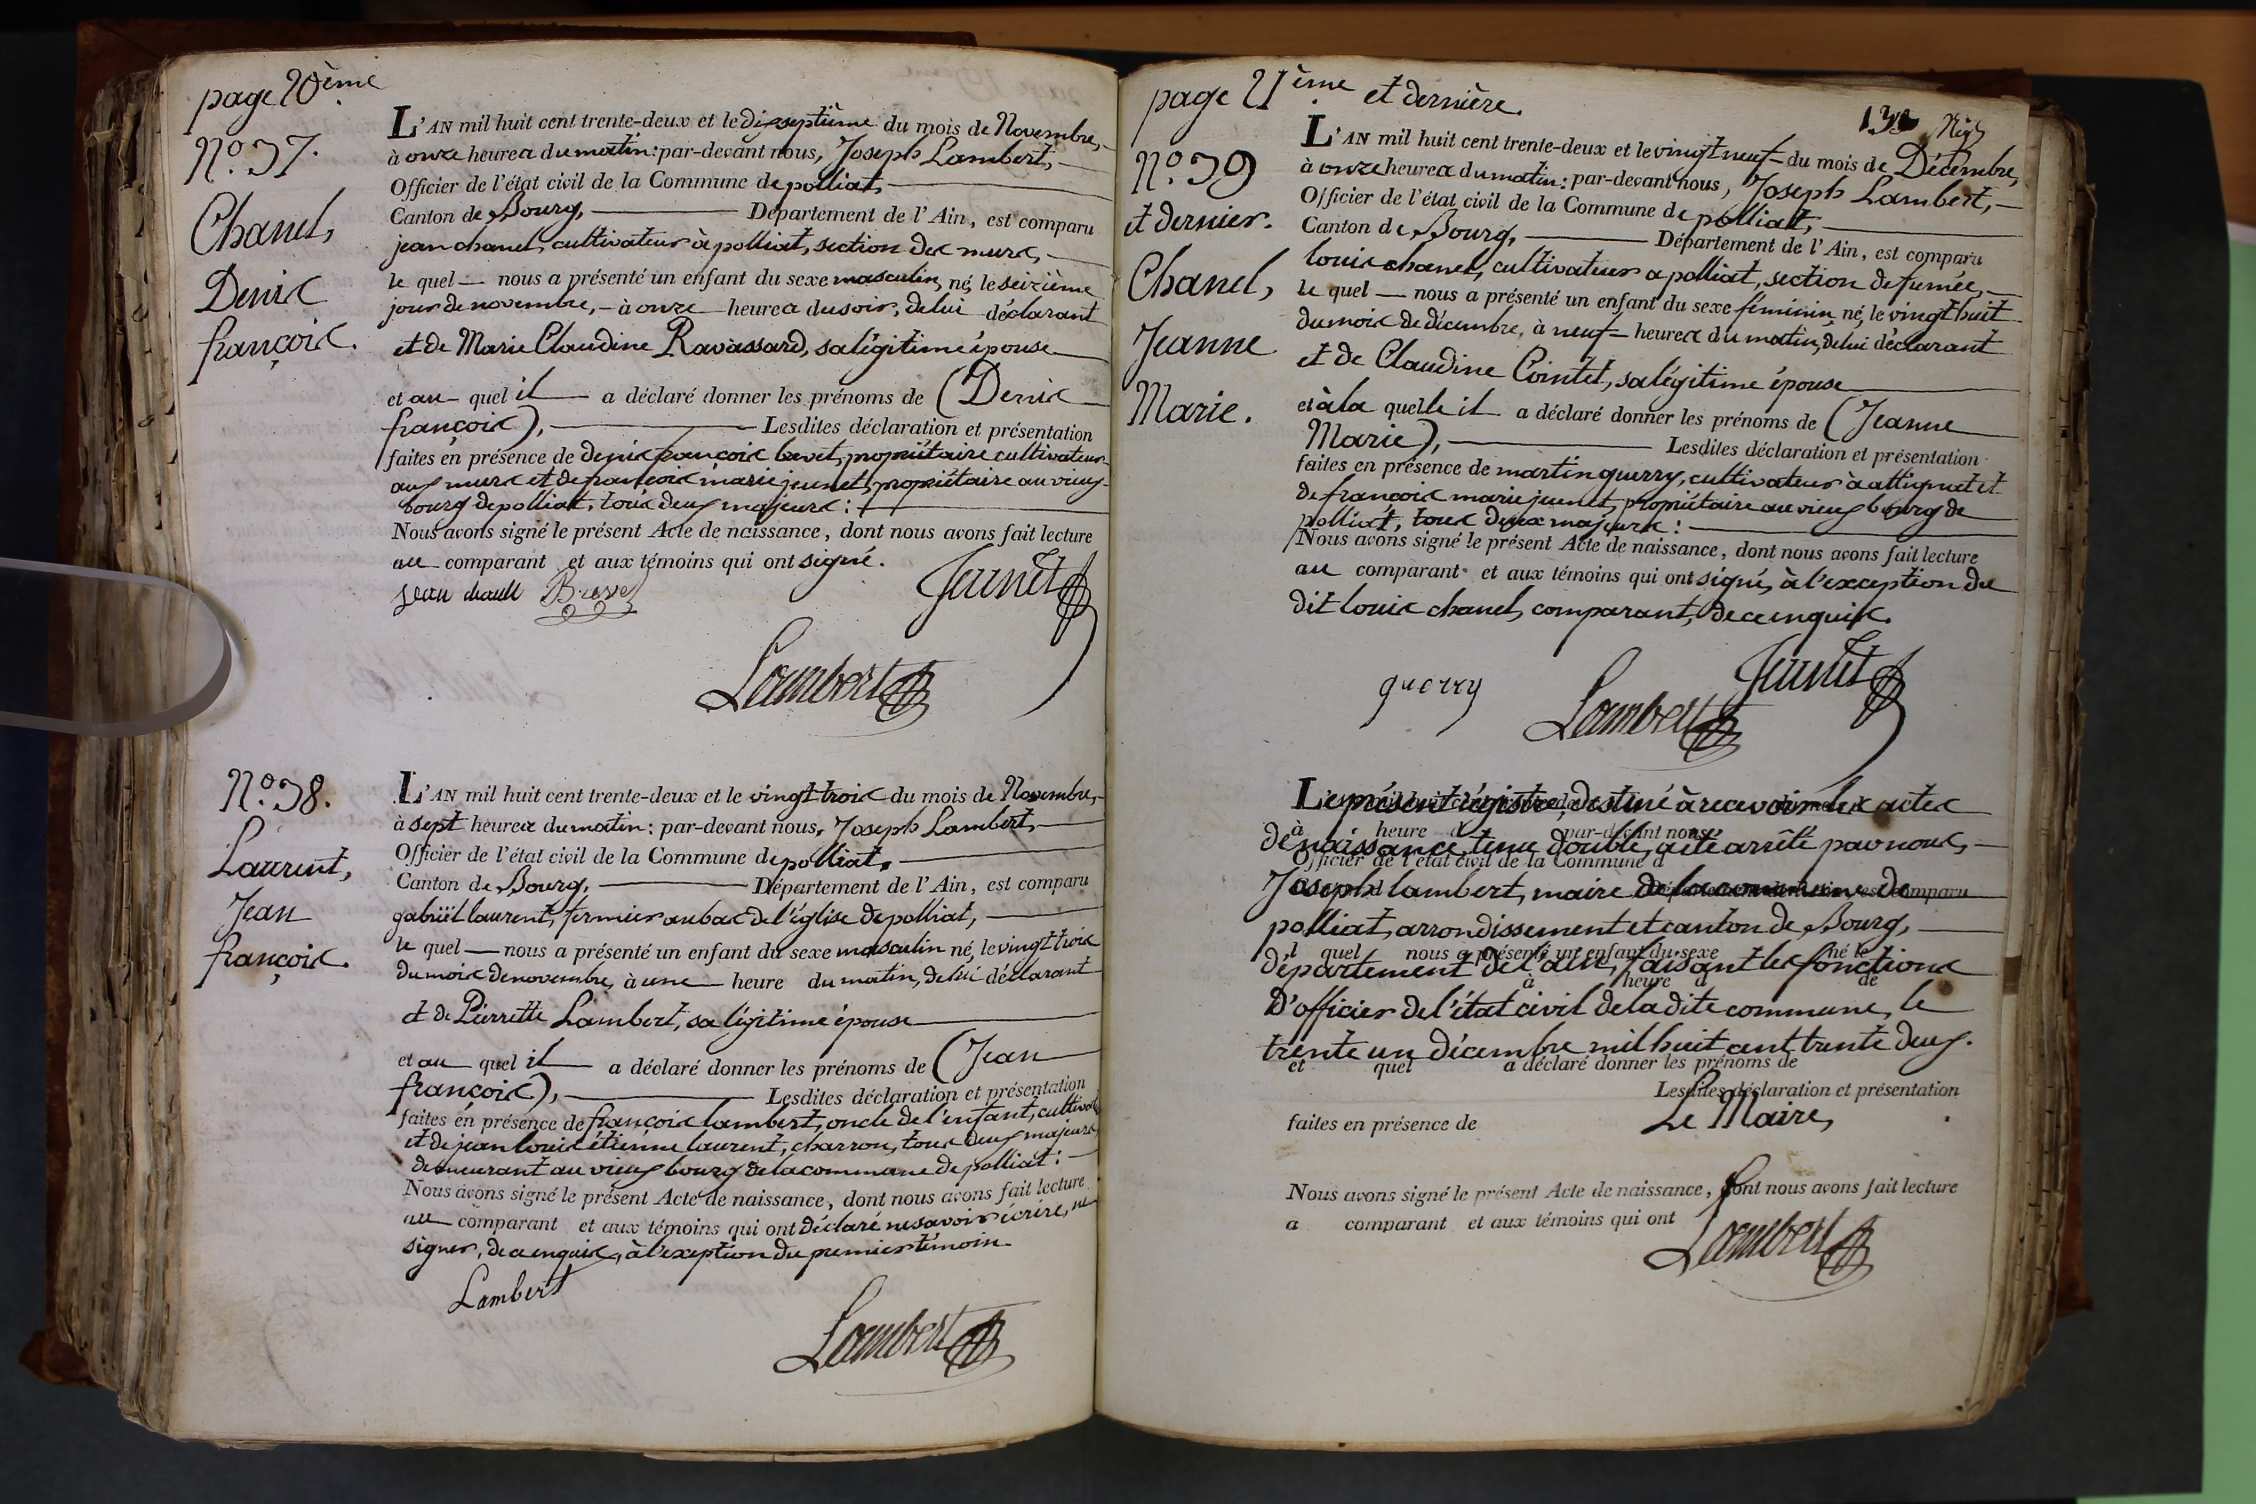 page 20ème
N.º 37.
Chanel,
Denis
françois.
L'AN mil huit cent trente-deux et le dix septième du mois de Novembre,
à onze heures du matin: par-devant nous, Joseph Lambert,
Officier de l'état civil de la Commune de polliat,
Canton de Bourg, Département de l'Ain, est comparu
jean chanel, cultivateur à polliat, section des murs,
le quel nous a présenté un enfant du sexe masculin, né, le seizième
jour de novembre, à onze heures du soir, de lui déclarant
et de Marie Claudine Ravassard, sa légitime épouse
et au quel il a déclaré donner les prénoms de (Denis
françois), Lesdites déclaration et présentation
faites en présence de denis françois buvet, propriétaire cultivateur
aux murs et de françois marie jeunet, propriétaire au vieux
bourg de polliat, tous deux majeurs:
Nous avons signé le présent Acte de naissance, dont nous avons fait lecture
au comparant et aux témoins qui ont signé.
jean chanell Jeunet
Lambert
N.º 38.
Laurent,
Jean
françois.
L'AN mil huit cent trente-deux et le vingt trois du mois de Novembre,
à sept heures du matin: par-devant nous, Joseph Lambert,
Officier de l'état civil de la Commune de polliat,
Canton de Bourg, Département de l'Ain, est comparu
gabriël laurent, fermier au bas de l'église de polliat,
le quel nous a présenté un enfant du sexe masculin né, le vingt trois
du mois de novembre, à une heure du matin, de lui déclarant
et de Pierrette Lambert, sa légitime épouse
et au quel il a déclaré donner les prénoms de (Jean
françois), Lesdites déclaration et présentation
faites en présence de françois lambert, oncle de l'enfant, cultivat
et de jean louis étienne laurent, charron, tous deux majeurs,
demeurant au vieux bourg de la commune de polliat:
Nous avons signé le présent Acte de naissance, dont nous avons fait lecture
au comparant et aux témoins qui ont déclaré ne savoir écrire, ne
signer, de ce enquis, à l'exception du premier témoin.
Lambert
Lambert
page 21ème et dernière.
N.º 39
et dernier.
Chanel,
Jeanne
Marie.
L'AN mil huit cent trente-deux et le vingt neuf du mois de Décembre,
à onze heures du matin: par-devant nous, Joseph Lambert,
Officier de l'état civil de la Commune de polliat,
Canton de Bourg, Département de l'Ain, est comparu
louis chanel, cultivateur a polliat, section de fumée,
le quel nous a présenté un enfant du sexe féminin né, le vingt huit
du mois de décembre, à neuf heures du matin, de lui déclarant
et de Claudine Cointet, sa légitime épouse
et à la quelle il a déclaré donner les prénoms de (Jeanne
Marie), Lesdites déclaration et présentation
faites en présence de martin guerry, cultivateur à attignat et
de françois marie jeunet, propriétaire au vieux bourg de
polliat, tous deux majeurs:
Nous avons signé le présent Acte de naissance, dont nous avons fait lecture
au comparant et aux témoins qui ont signé, à l'exception du
dit louis chanel, comparant, de ce enquis.
guerry Jeunet
Lambert
Le présent régistre, destiné à recevoir les actes
à heure d par-devant nous
de naissance, tenu double, a été arrêté par nous,
Officier de l'état civil de la Commune d
Joseph lambert, maire de la commune de
est comparu
polliat, arrondissement et canton de Bourg,
l quel nous a présenté un enfant du sexe né le
département de l'ain, faisant les fonctions
à heure d de
D'officier de l'état civil de la dite commune, le
trente un décembre mil huit cent trente deux.
et quel a déclaré donner les prénoms de
Lesdites déclaration et présentation
faites en présence de Le Maire,
Nous avons signé le présent Acte de naissance, dont nous avons fait lecture
a comparant et aux témoins qui ont
Lambert